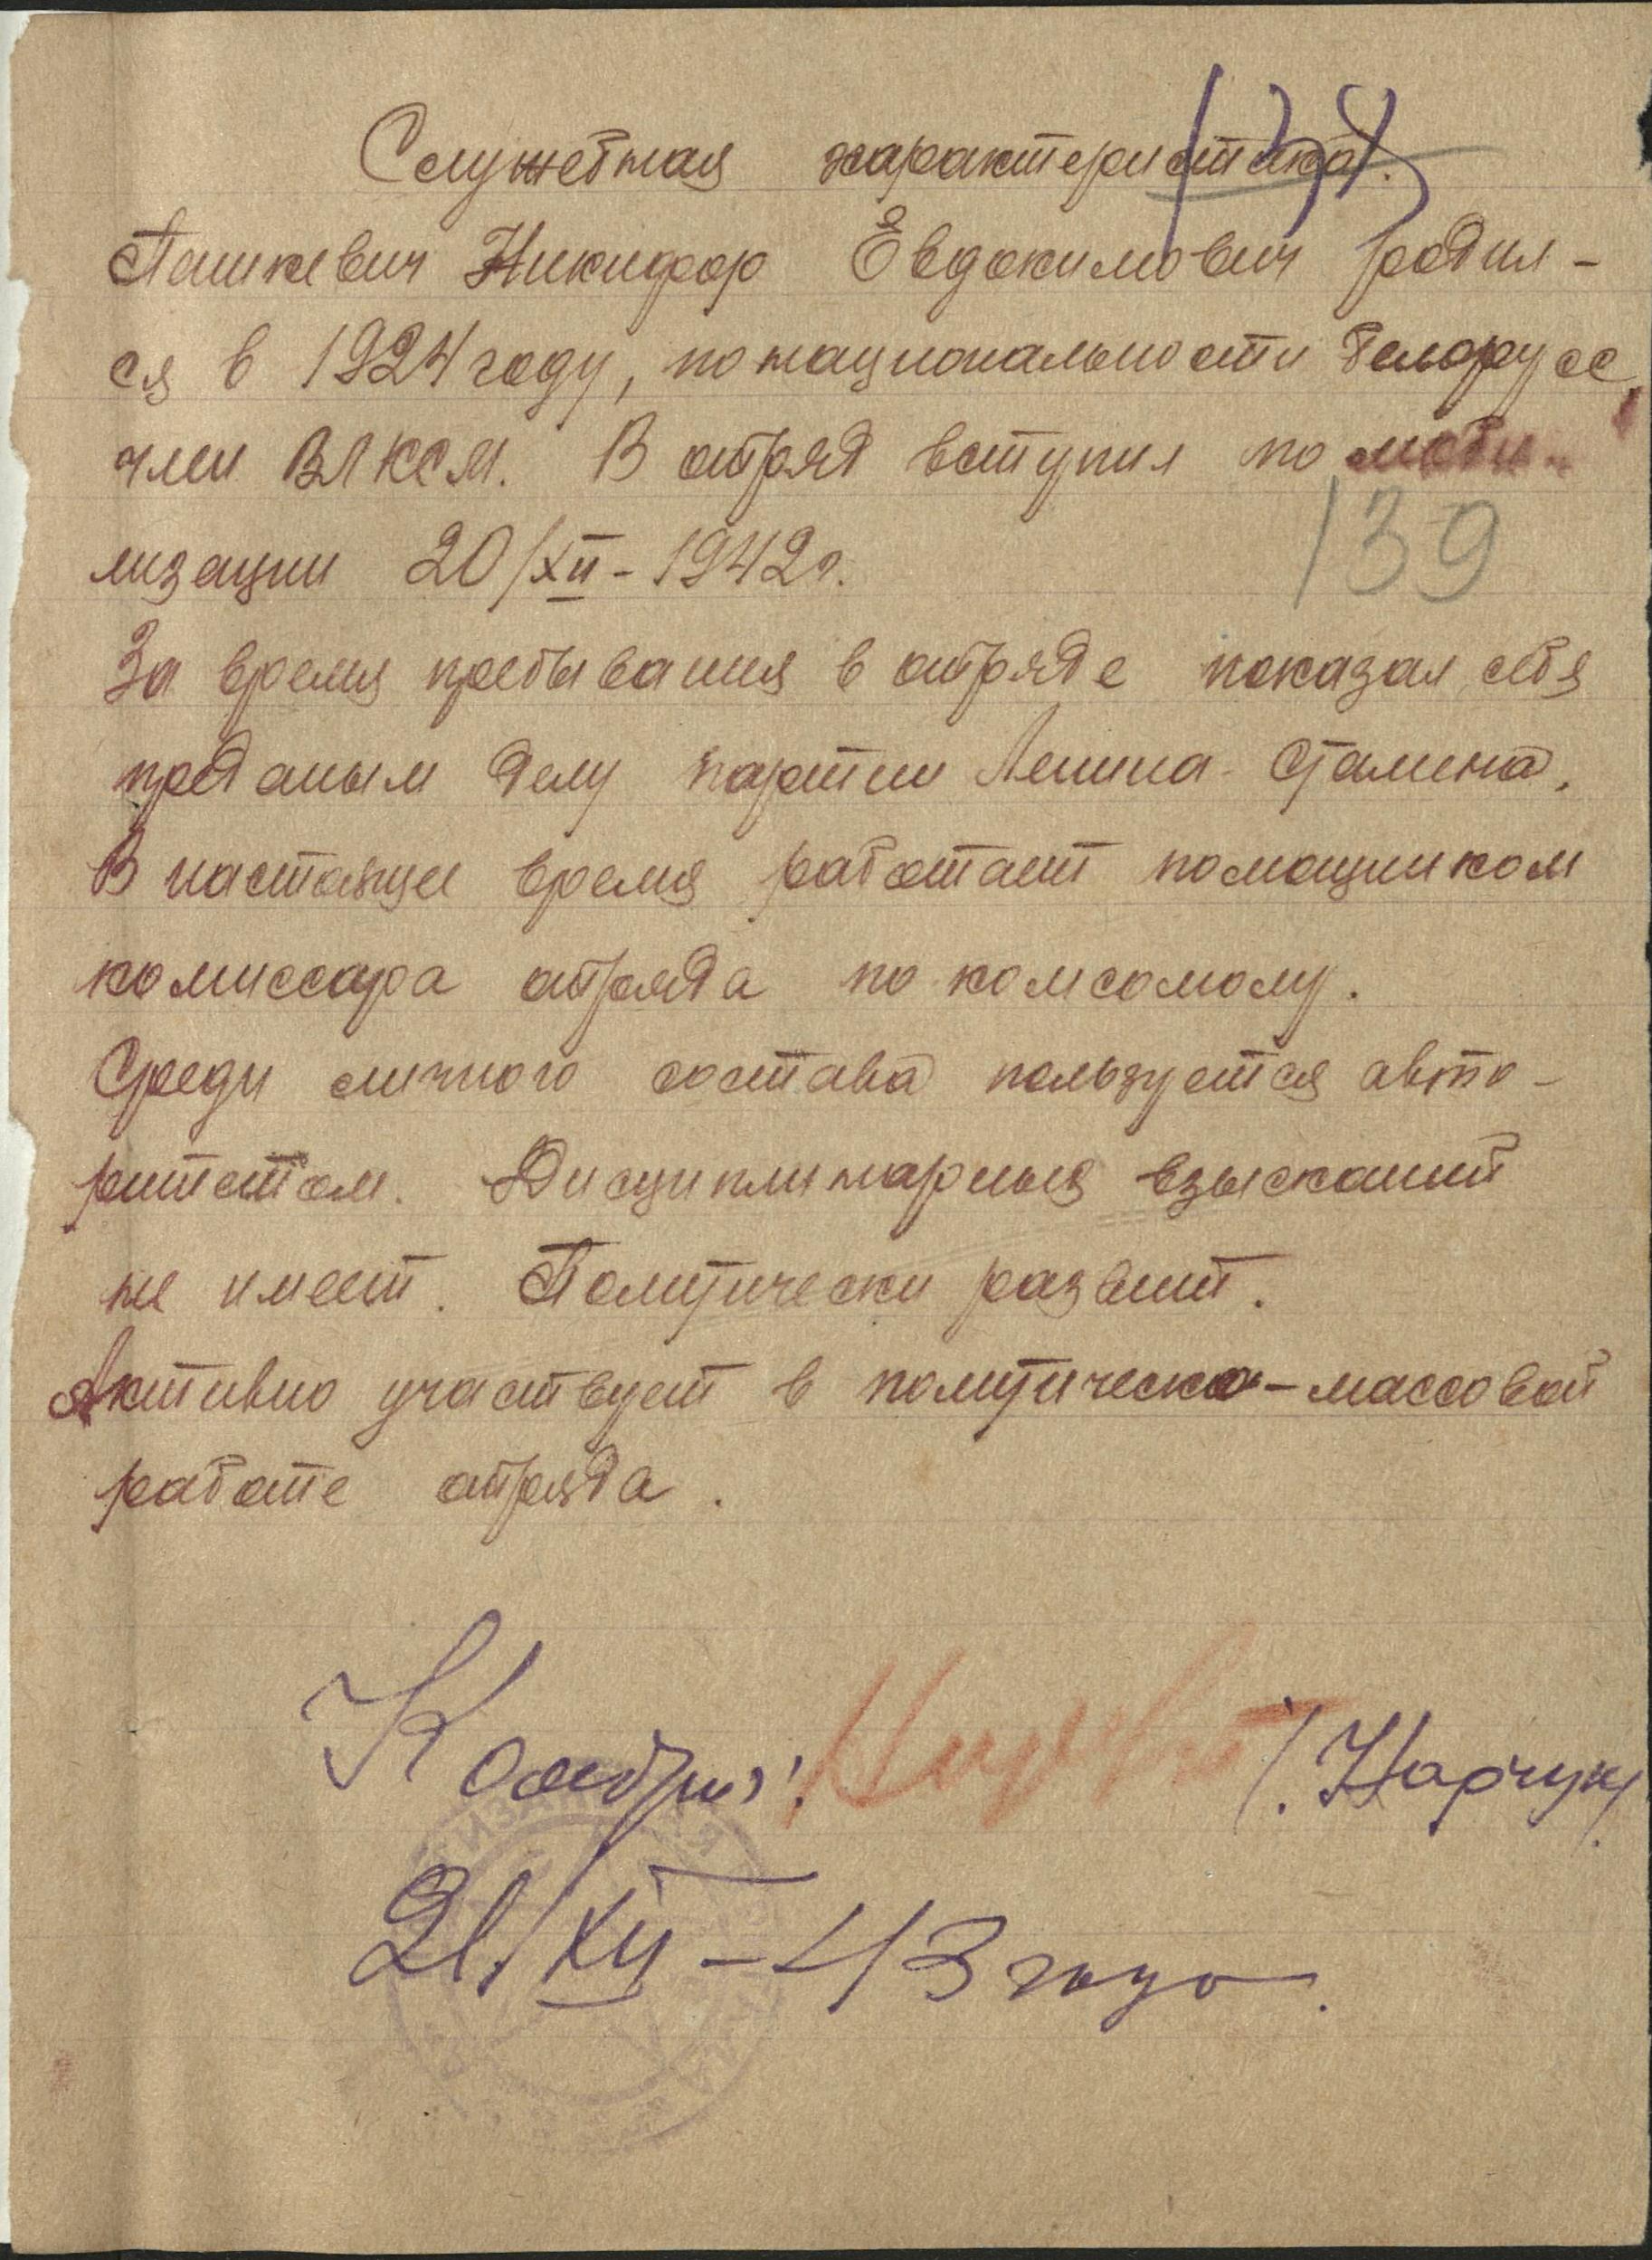 138
Служебная характеристика.
Пашкевич Никифор Евдокимович родил-
ся в 1924 году, по национальности белорусс,
член ВЛКСМ. В отряд вступил по моби-
лизации 20/XII-1942г.
139
За время пребывания в отряде показал себя
преданым делу партии Ленина-Сталина.
В настоящее время работает помощником
комиссара отряда по комсомолу.
Среди личного состава пользуется авто-
ритетом. Дисциплинарных взысканий
не имеет. Политически развит.
Активно участвует в политическо-массовой
работе отряда.
(Нарчук)
21/XII-43 года.